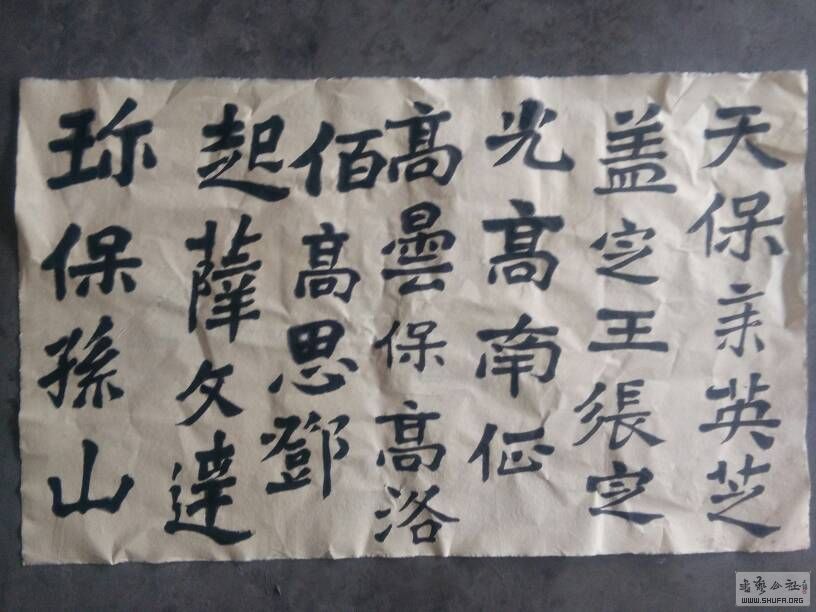 天保亲英芝
盖定王張定
光高南征
高曇保高洛
佰高思鄧
起薩文達
珎保孫山
書藝公社
WWW.SHUFA.ORG